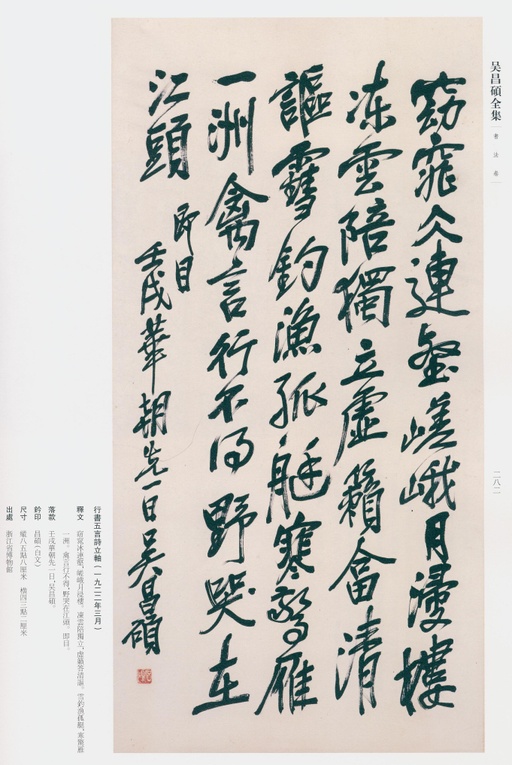 吴昌碩全集
書法卷
二八二
窈窕仌連壑嵯峨月漫樓
冻雲陪獨立虛籟畣清
謳雪釣漁孤艇寒驚雁
一洲禽言行不得野哭在
江頭 即目
壬戌華朝先一日吴昌碩
行書五言詩立軸（一九二二年三月）
釋文 窈窕冰連壑，嵯峨月漫樓。凍雲陪獨立，虛籟答清謳。雪釣漁孤艇，寒驚雁
一洲。禽言行不得，野哭在江頭。即目。
落款 壬戌華朝先一日，吴昌碩。
鈐印 昌碩（白文）
尺寸 縱八五點八厘米 橫四三點二厘米
出處 浙江省博物館